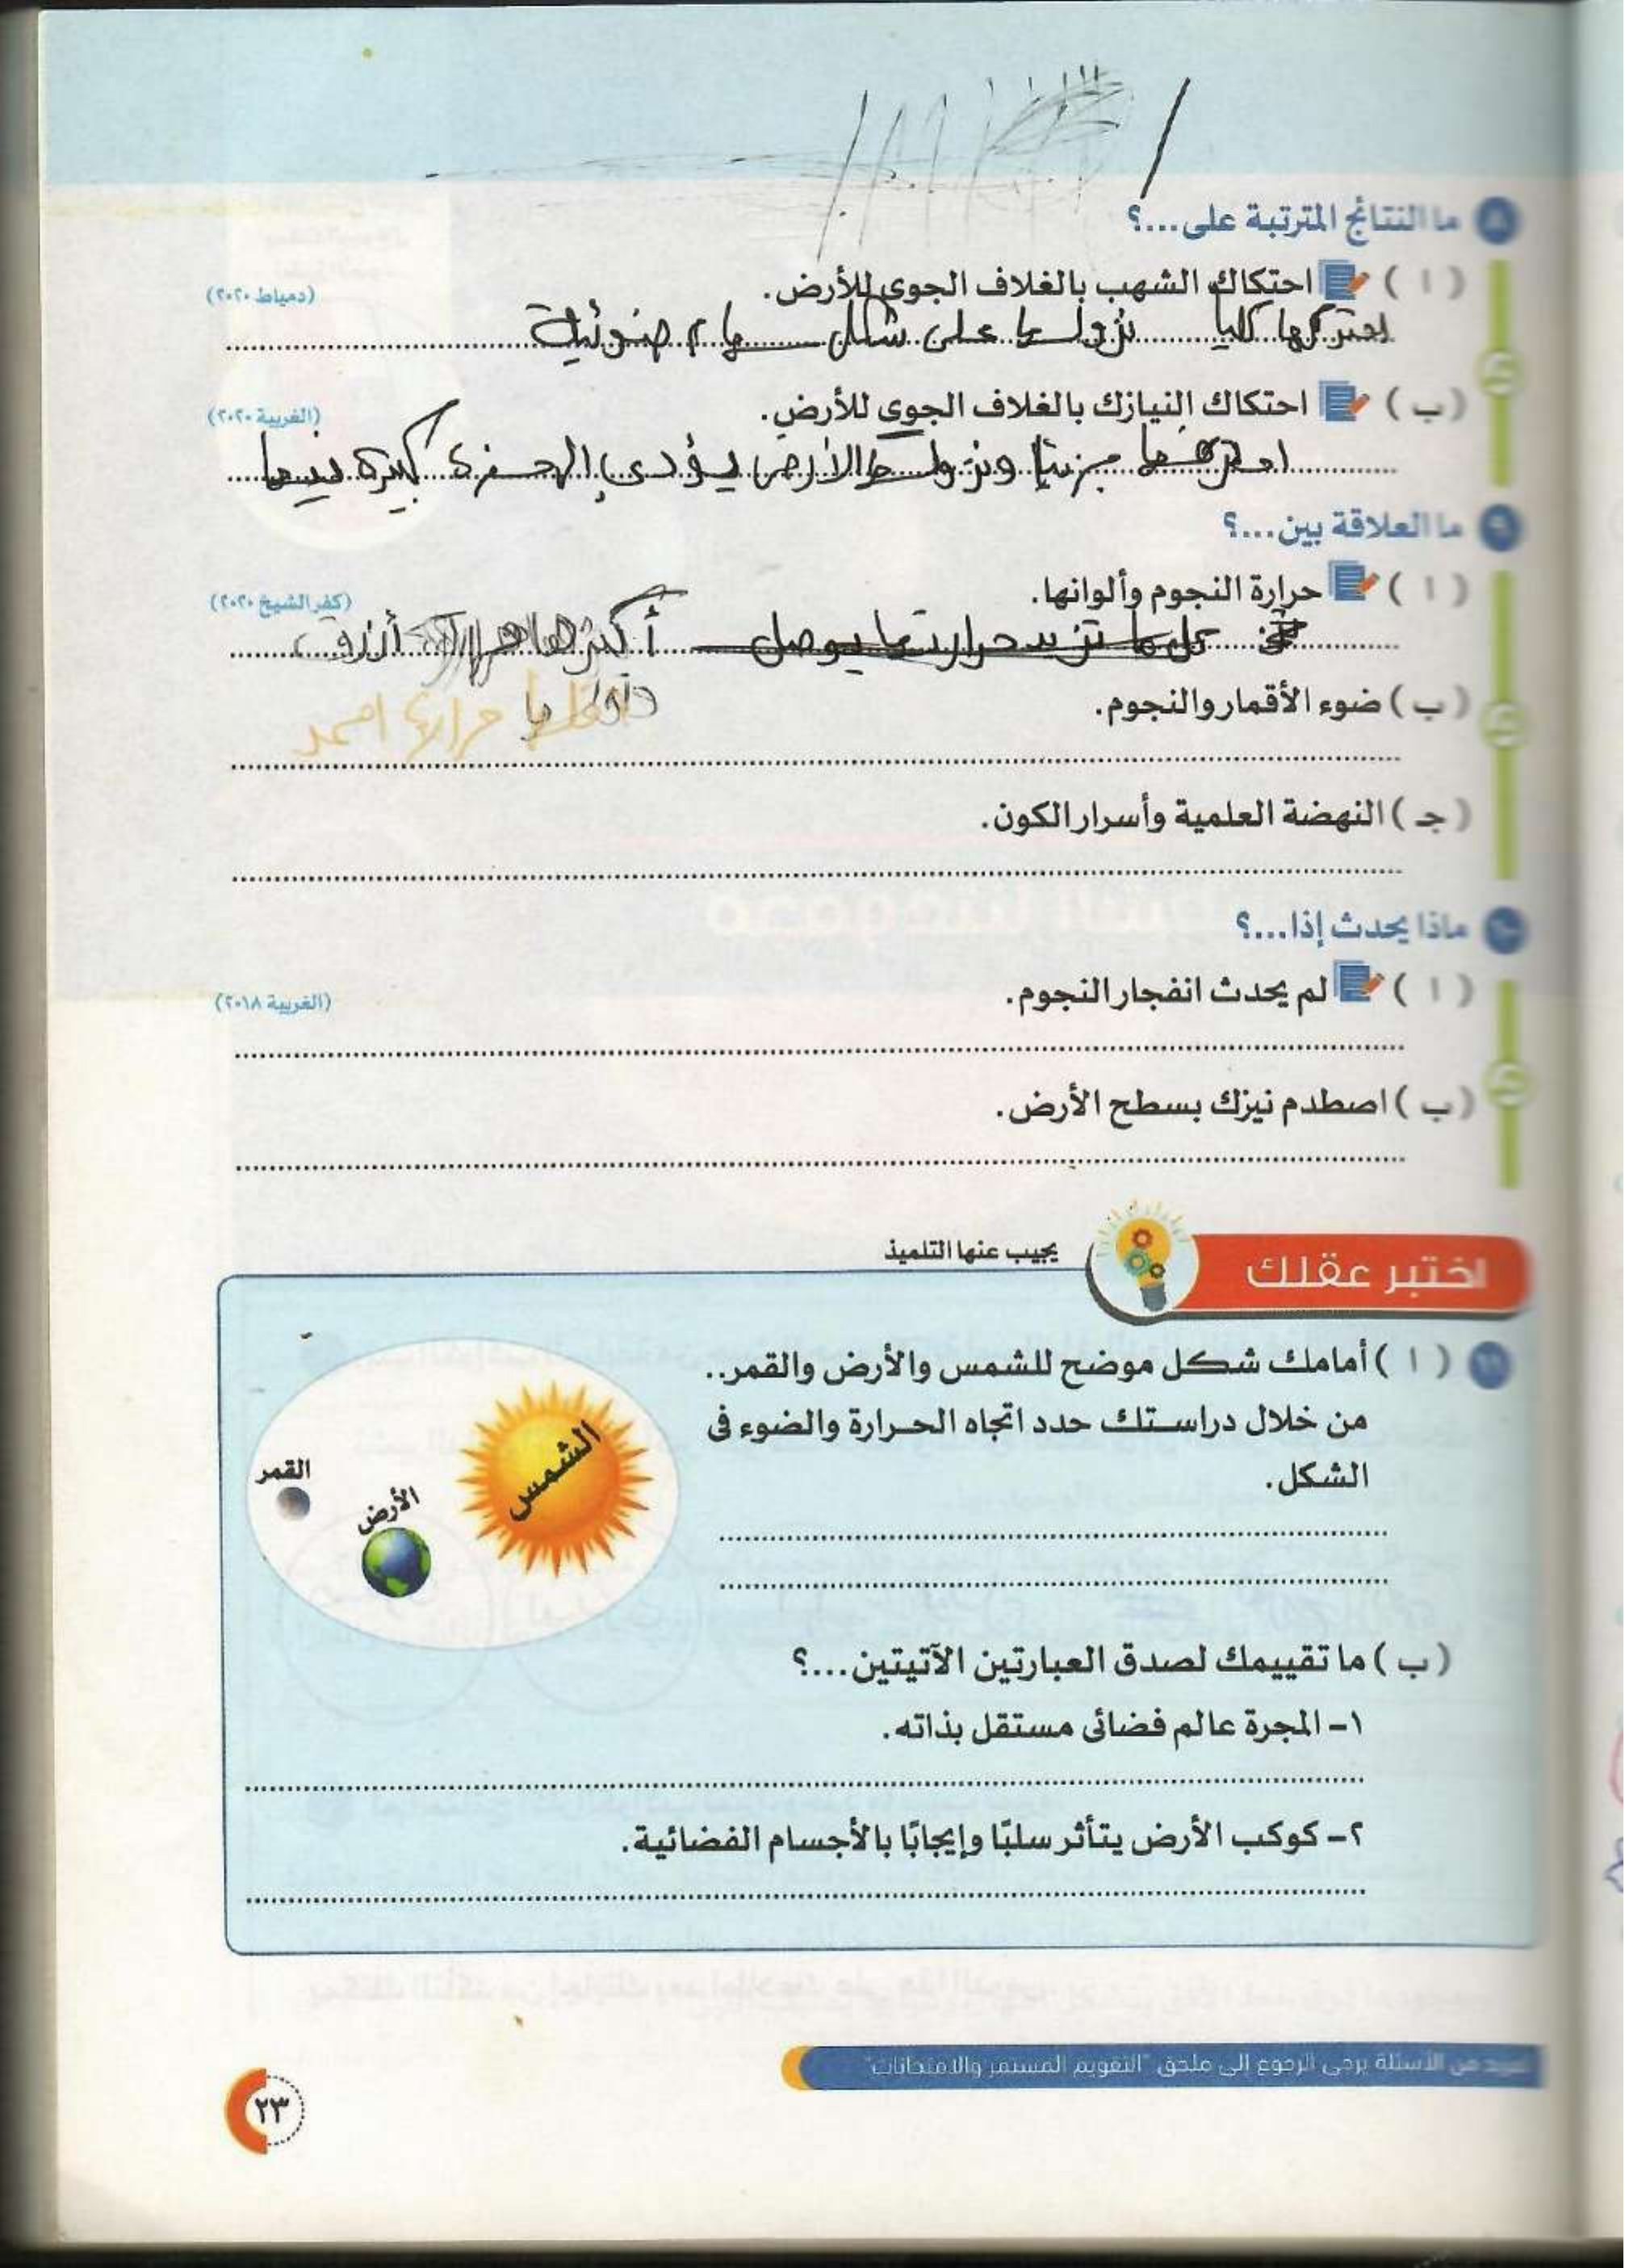 ٨ ما النتائج المترتبة على...؟
( ا ) احتكاك الشهب بالغلاف الجوى للأرض. (دمياط ٢٠٢٠)
كليا على شكل ضوئية
(ب) احتكاك النيازك بالغلاف الجوى للأرض. (الغربية ٢٠٢٠)
جزئيا الأرض يؤدى كبيرة
٩ ما العلاقة بين...؟
( ا ) حرارة النجوم وألوانها. (كفر الشيخ ٢٠٢٠)
كل ما تزيد حرارتها يوصل أكثرها أزرق
حرارة احمر
(ب) ضوء الأقمار والنجوم.
(جـ) النهضة العلمية وأسرار الكون.
١٠ ماذا يحدث إذا...؟
( ا ) لم يحدث انفجار النجوم. (الغربية ٢٠١٨)
(ب) اصطدم نيزك بسطح الأرض.
اختبر عقلك
يجيب عنها التلميذ
١١ ( ا ) أمامك شكل موضح للشمس والأرض والقمر..
من خلال دراستك حدد اتجاه الحرارة والضوء فى
الشكل.
الشمس
القمر
الأرض
(ب) ما تقييمك لصدق العبارتين الآتيتين...؟
١- المجرة عالم فضائى مستقل بذاته.
٢- كوكب الأرض يتأثر سلبًا وإيجابًا بالأجسام الفضائية.
من الأسئلة يرجى الرجوع إلى ملحق "التقويم المستمر والامتحانات"
٢٣